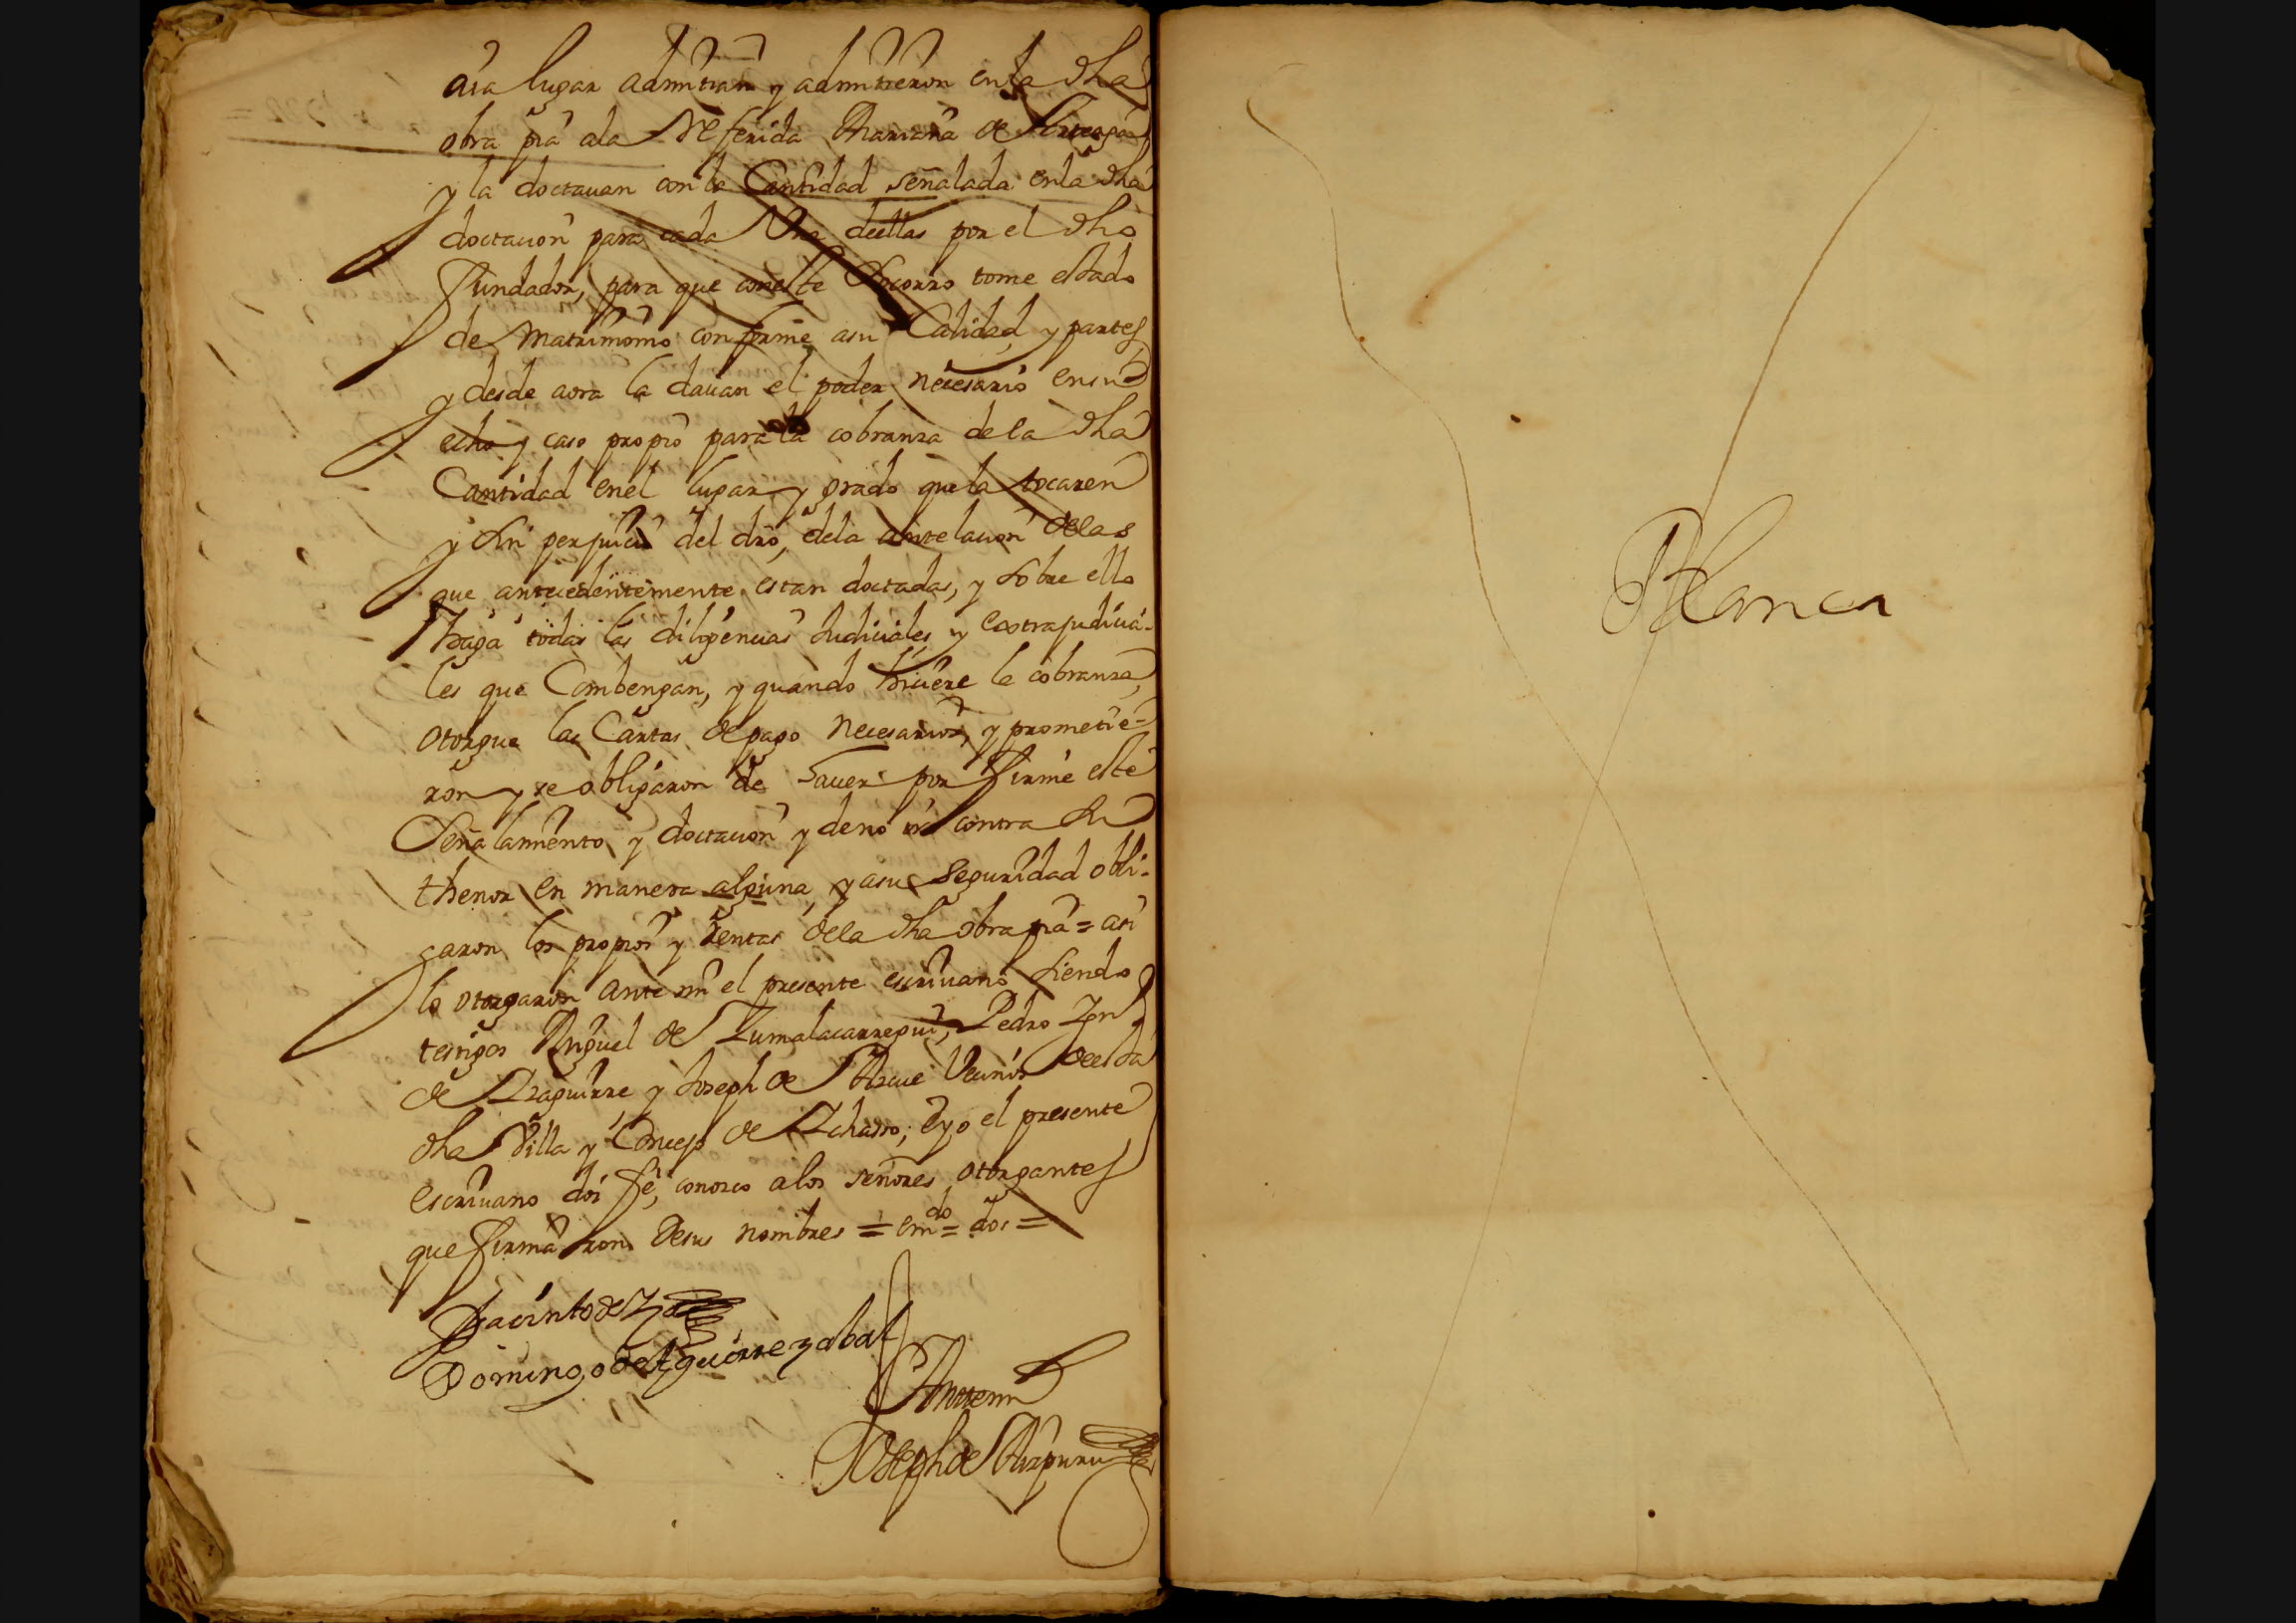 aia lugar admitian y admitieron en la dha
obra pia ala Referida Mariana de
y la doctauan con la Cantidad señalada en la dha
doctacion para cada Vna dellas por el dho
fundador, para que con este Socorro tome estado
de Matrimonio conforme asu Calidad y partes
y desde aora la dauan el poder necesario en su
echo y caso propio para la cobranza de la dha
Cantidad en el lugar y grado que la tocaren
y sin perjuicio del dro, dela antelacion delas
que antecedentemente estan doctadas, y sobre ello
haga todas las diligencias Judiciales y extrajudicia-
les que Combengan, y quando hiciere la cobranza,
otorgue las Cartas de pago necesarias, y prometie-
ron y se obligaron de hauer por firme este
Señalamiento y doctacion y de no ir contra su
thenor en manera alguna, y asu seguridad obli-
garon los propios y Rentas dela dha obra pia = asi
lo otorgaron ante mi el presente escriuano siendo
testigos Miguel de Zumalacarregui, Pedro Ign
de Yraguirre y Joseph de Arcue Vecinos de esta
dha Villa y Concejo de; e yo el presente
escriuano doi fe, conozco alos señores otorgantes
que firmaron de sus nombres = em^do = dos =
Jacinto de
Domingo de Aguirrezabal
Ante mi
Joseph de Aizpuru
Blanca